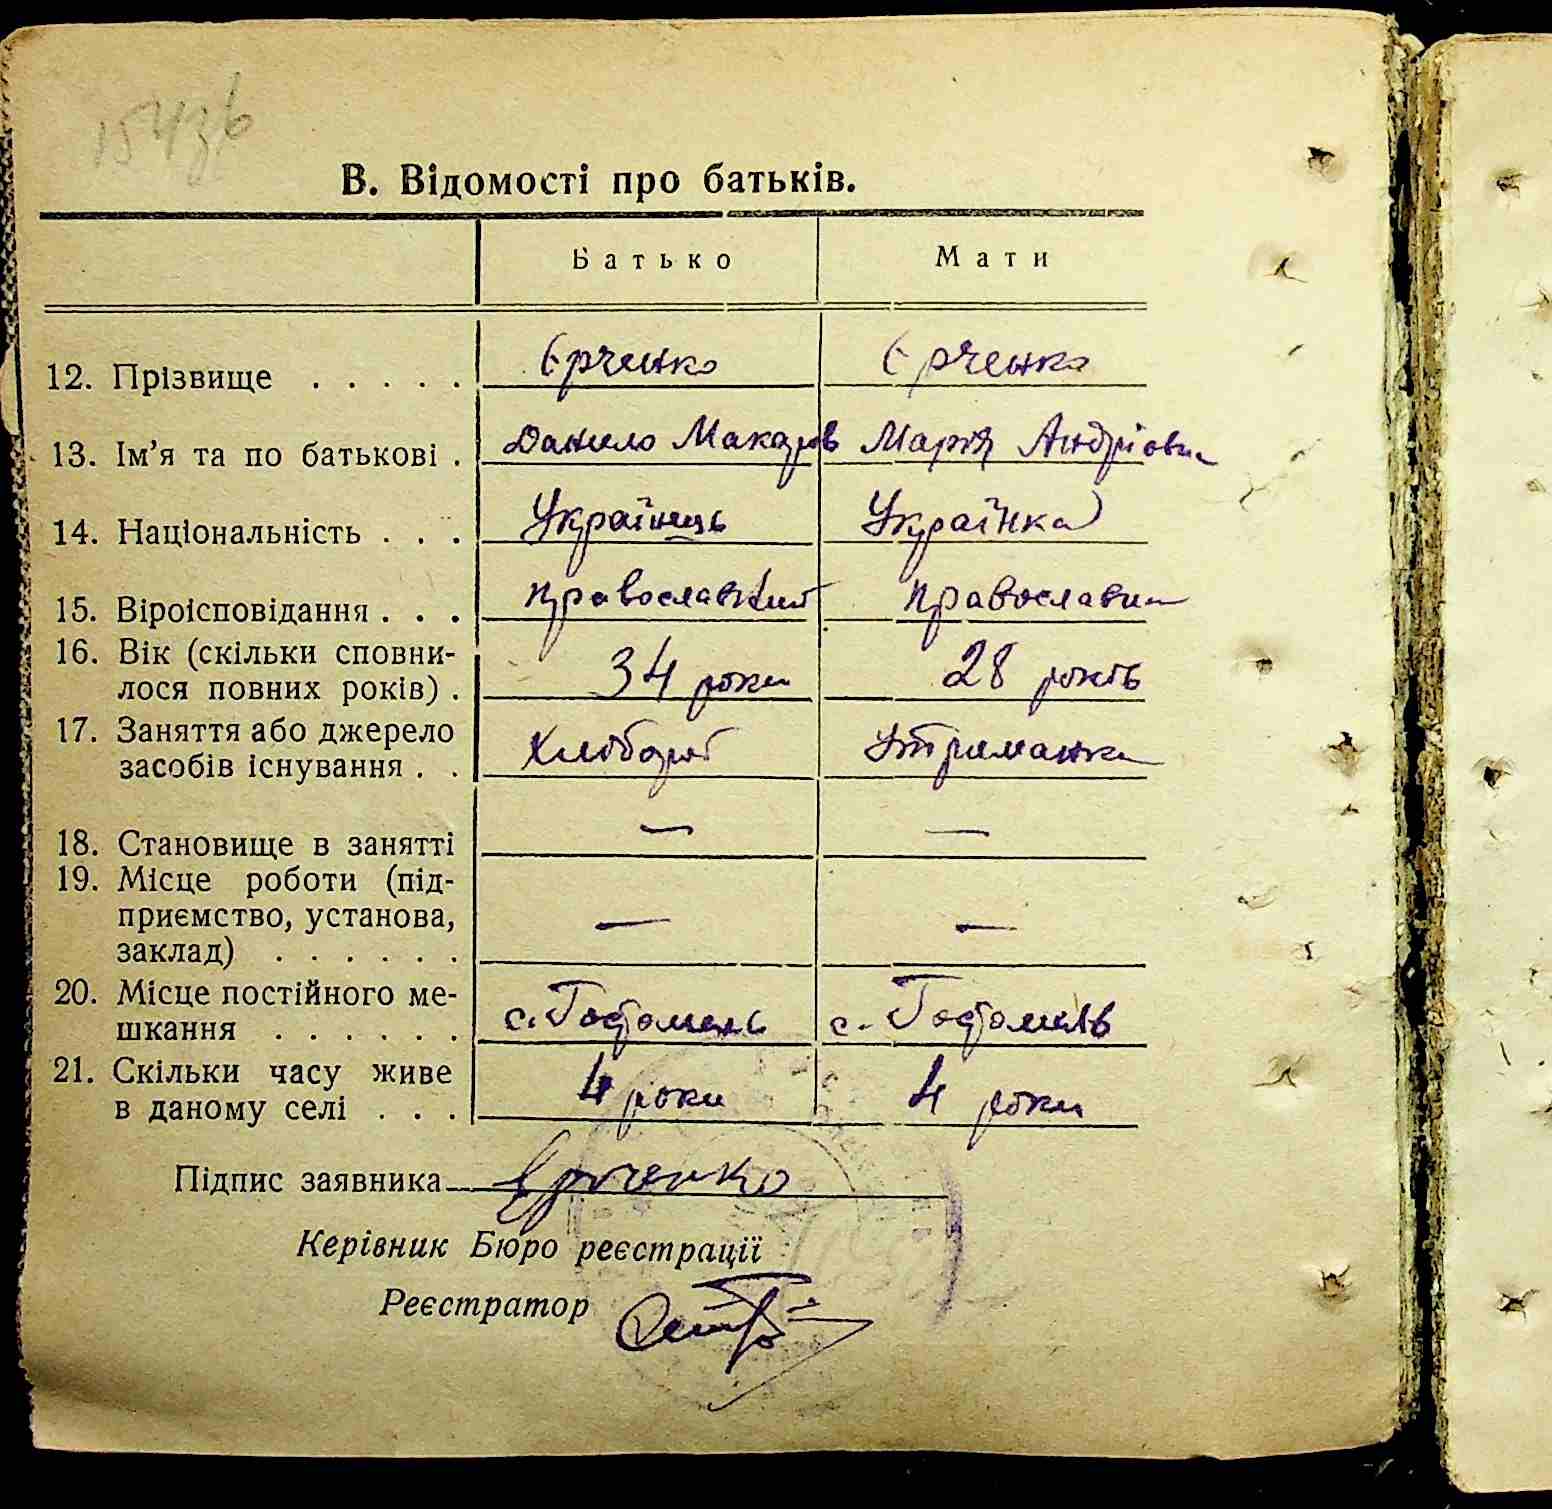 В. Відомості про батьків.
Батько Мати
12. Прізвище . . . . . Єрченко Єрченко
13. Ім'я та по батькові . Данило Макаров Марія Андріовна
14. Національність . . . Українець Українка
15. Віроісповідання . . . православний православна
16. Вік (скільки сповни-
лося повних років) . 34 роки 28 років
17. Заняття або джерело
засобів існування . . Хлібороб Утриманка
18. Становище в занятті — —
19. Місце роботи (під-
приємство, установа,
заклад) . . . . . . — —
20. Місце постійного ме-
шкання . . . . . . с. Гостомель с. Гостомель
21. Скільки часу живе
в даному селі . . . 4 роки 4 роки
Підпис заявника Єрченко
Керівник Бюро реєстрації
Реєстратор